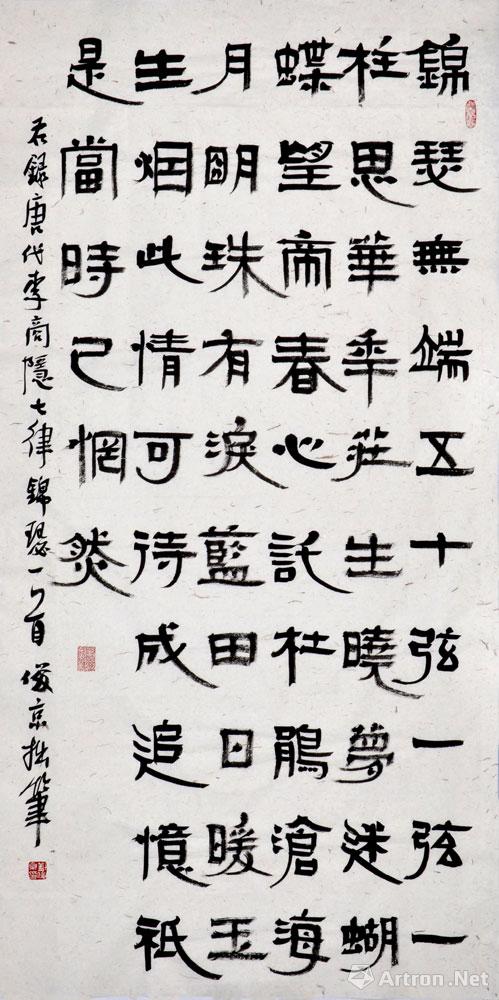 錦瑟無端五十弦一弦一
柱思華年莊生曉夢迷蝴
蝶望帝春心託杜鵑滄海
月明珠有淚藍田日暖玉
生烟此情可待成追憶祇
是當時已惘然
右録唐代李商隱七律錦瑟一首俊京拙筆
Artron.Net